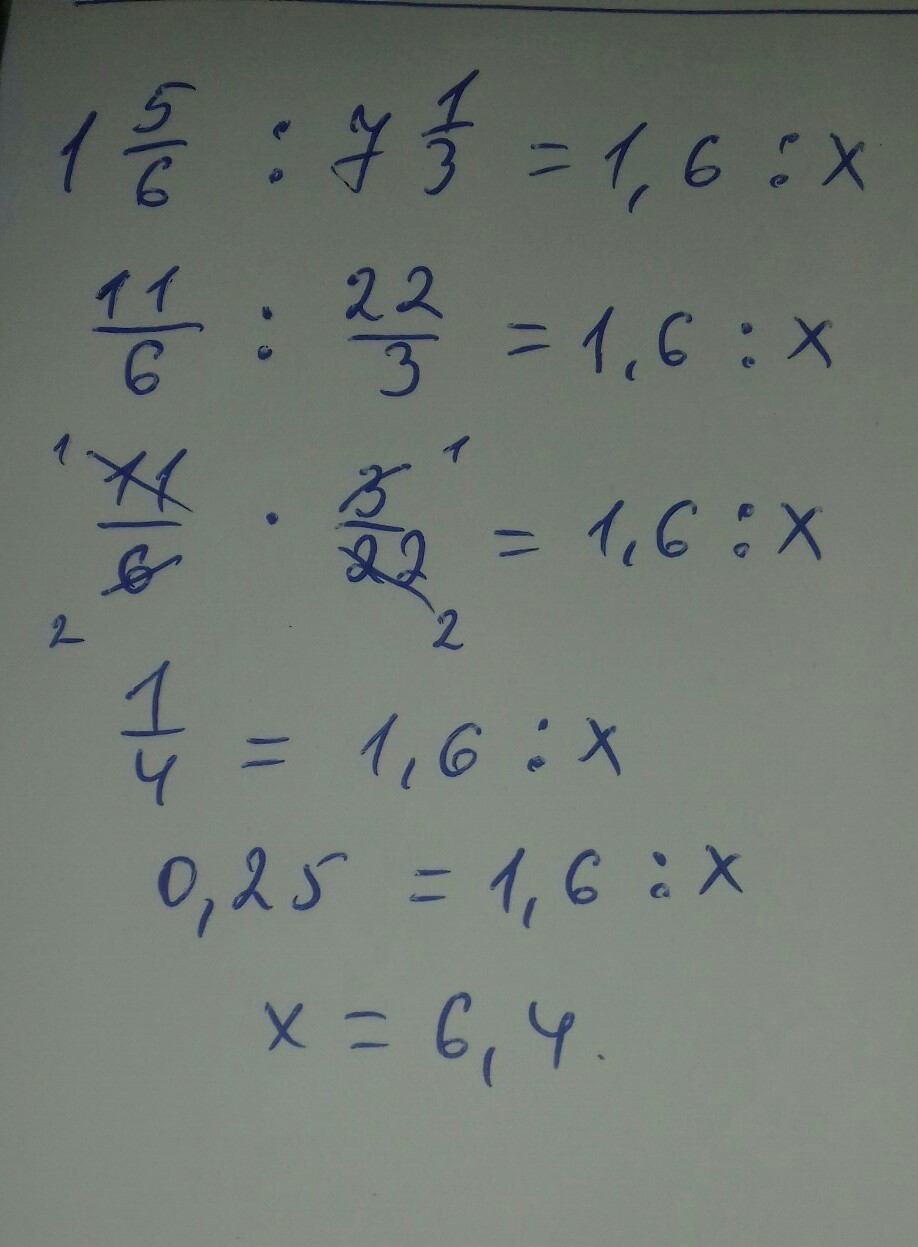 1 5/6 : 7 1/3 = 1,6 : x
11/6 : 22/3 = 1,6 : x
1 11/6 2 · 3/22 1 2 = 1,6 : x
1/4 = 1,6 : x
0,25 = 1,6 : x
x = 6,4.